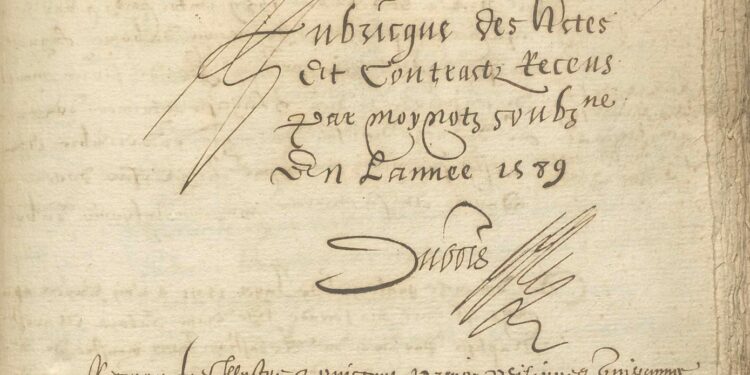 Rubricque des Actes
Et Contractz Receus
par moy notz soubzne
En Lannee 1589
Dubois